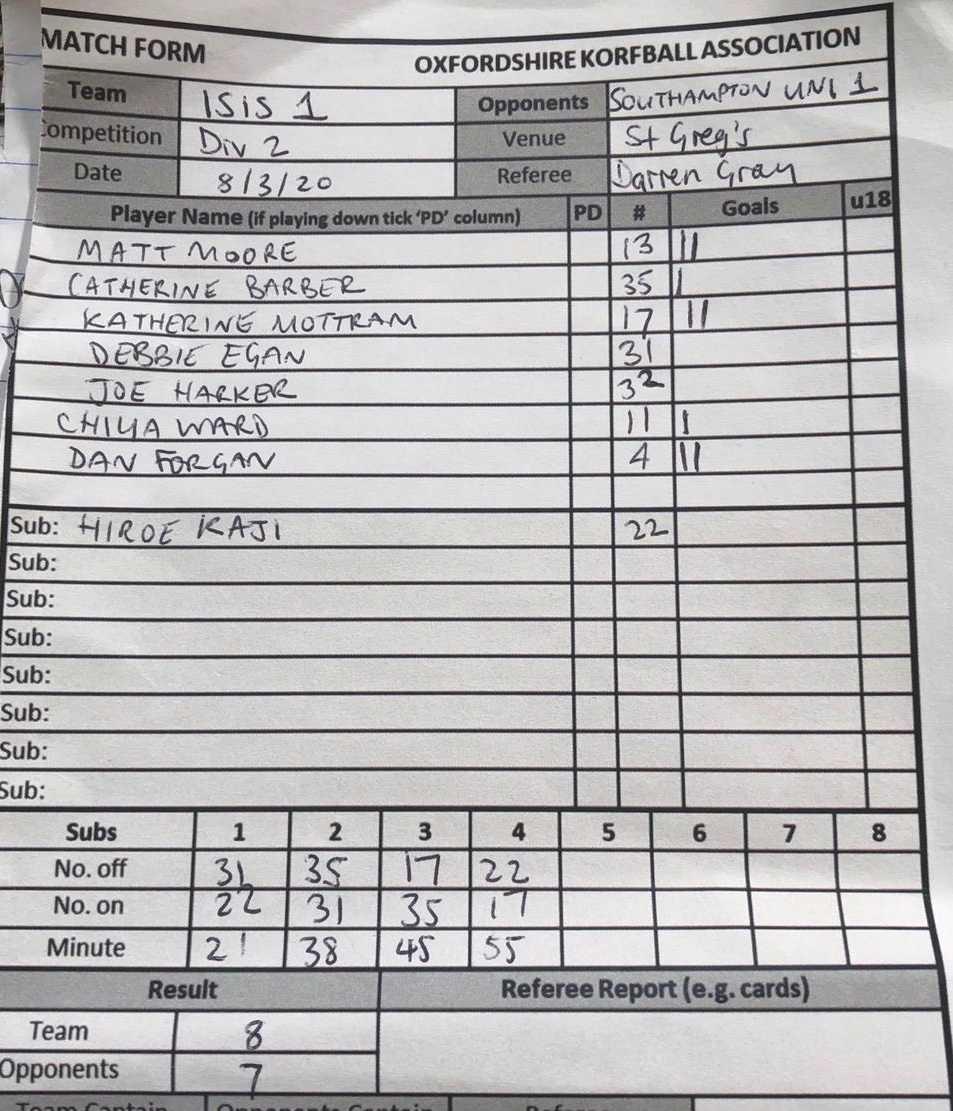 MATCH FORM OXFORDSHIRE KORFBALL ASSOCIATION
Team ISIS 1 Opponents SOUTHAMPTON UNI 1
Competition Div 2 Venue St Greg's
Date 8/3/20 Referee Darren Gray
Player Name (if playing down tick 'PD' column) PD # Goals u18
MATT MOORE 13 ||
CATHERINE BARBER 35 |
KATHERINE MOTTRAM 17 ||
DEBBIE EGAN 31
JOE HARKER 32
CHIYA WARD 11 |
DAN FORGAN 4 ||
Sub: HIROE KAJI 22
Sub:
Sub:
Sub:
Sub:
Sub:
Sub:
Sub:
Subs 1 2 3 4 5 6 7 8
No. off 31 35 17 22
No. on 22 31 35 17
Minute 21 38 45 55
Result Referee Report (e.g. cards)
Team 8
Opponents 7
Team Captain Opponents Captain Referee